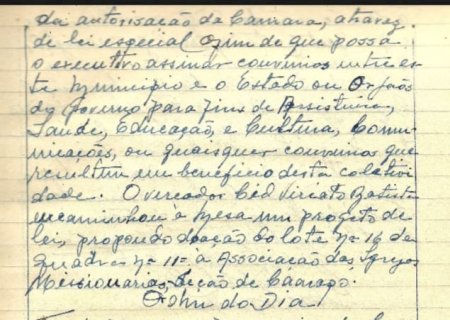 da autorisação da Camara, atravez
de lei especial afim de que possa
o executivo assinar convinios entre es-
te Municipio e o Estado ou Orgãos
do governo, para fins de Assistencia,
Saude, Educação, e Cultura, Comu-
nicações, ou quaisquer convinios que
resultem em beneficio desta coletivi
dade. O vereador Cid Viriato Batista
encaminhou à Mesa um projeto de
lei, propondo doação do lote nº 16 da
quadra nº 11 à Associação das Igrejas
Missionarias, Seção de
Ordem do Dia